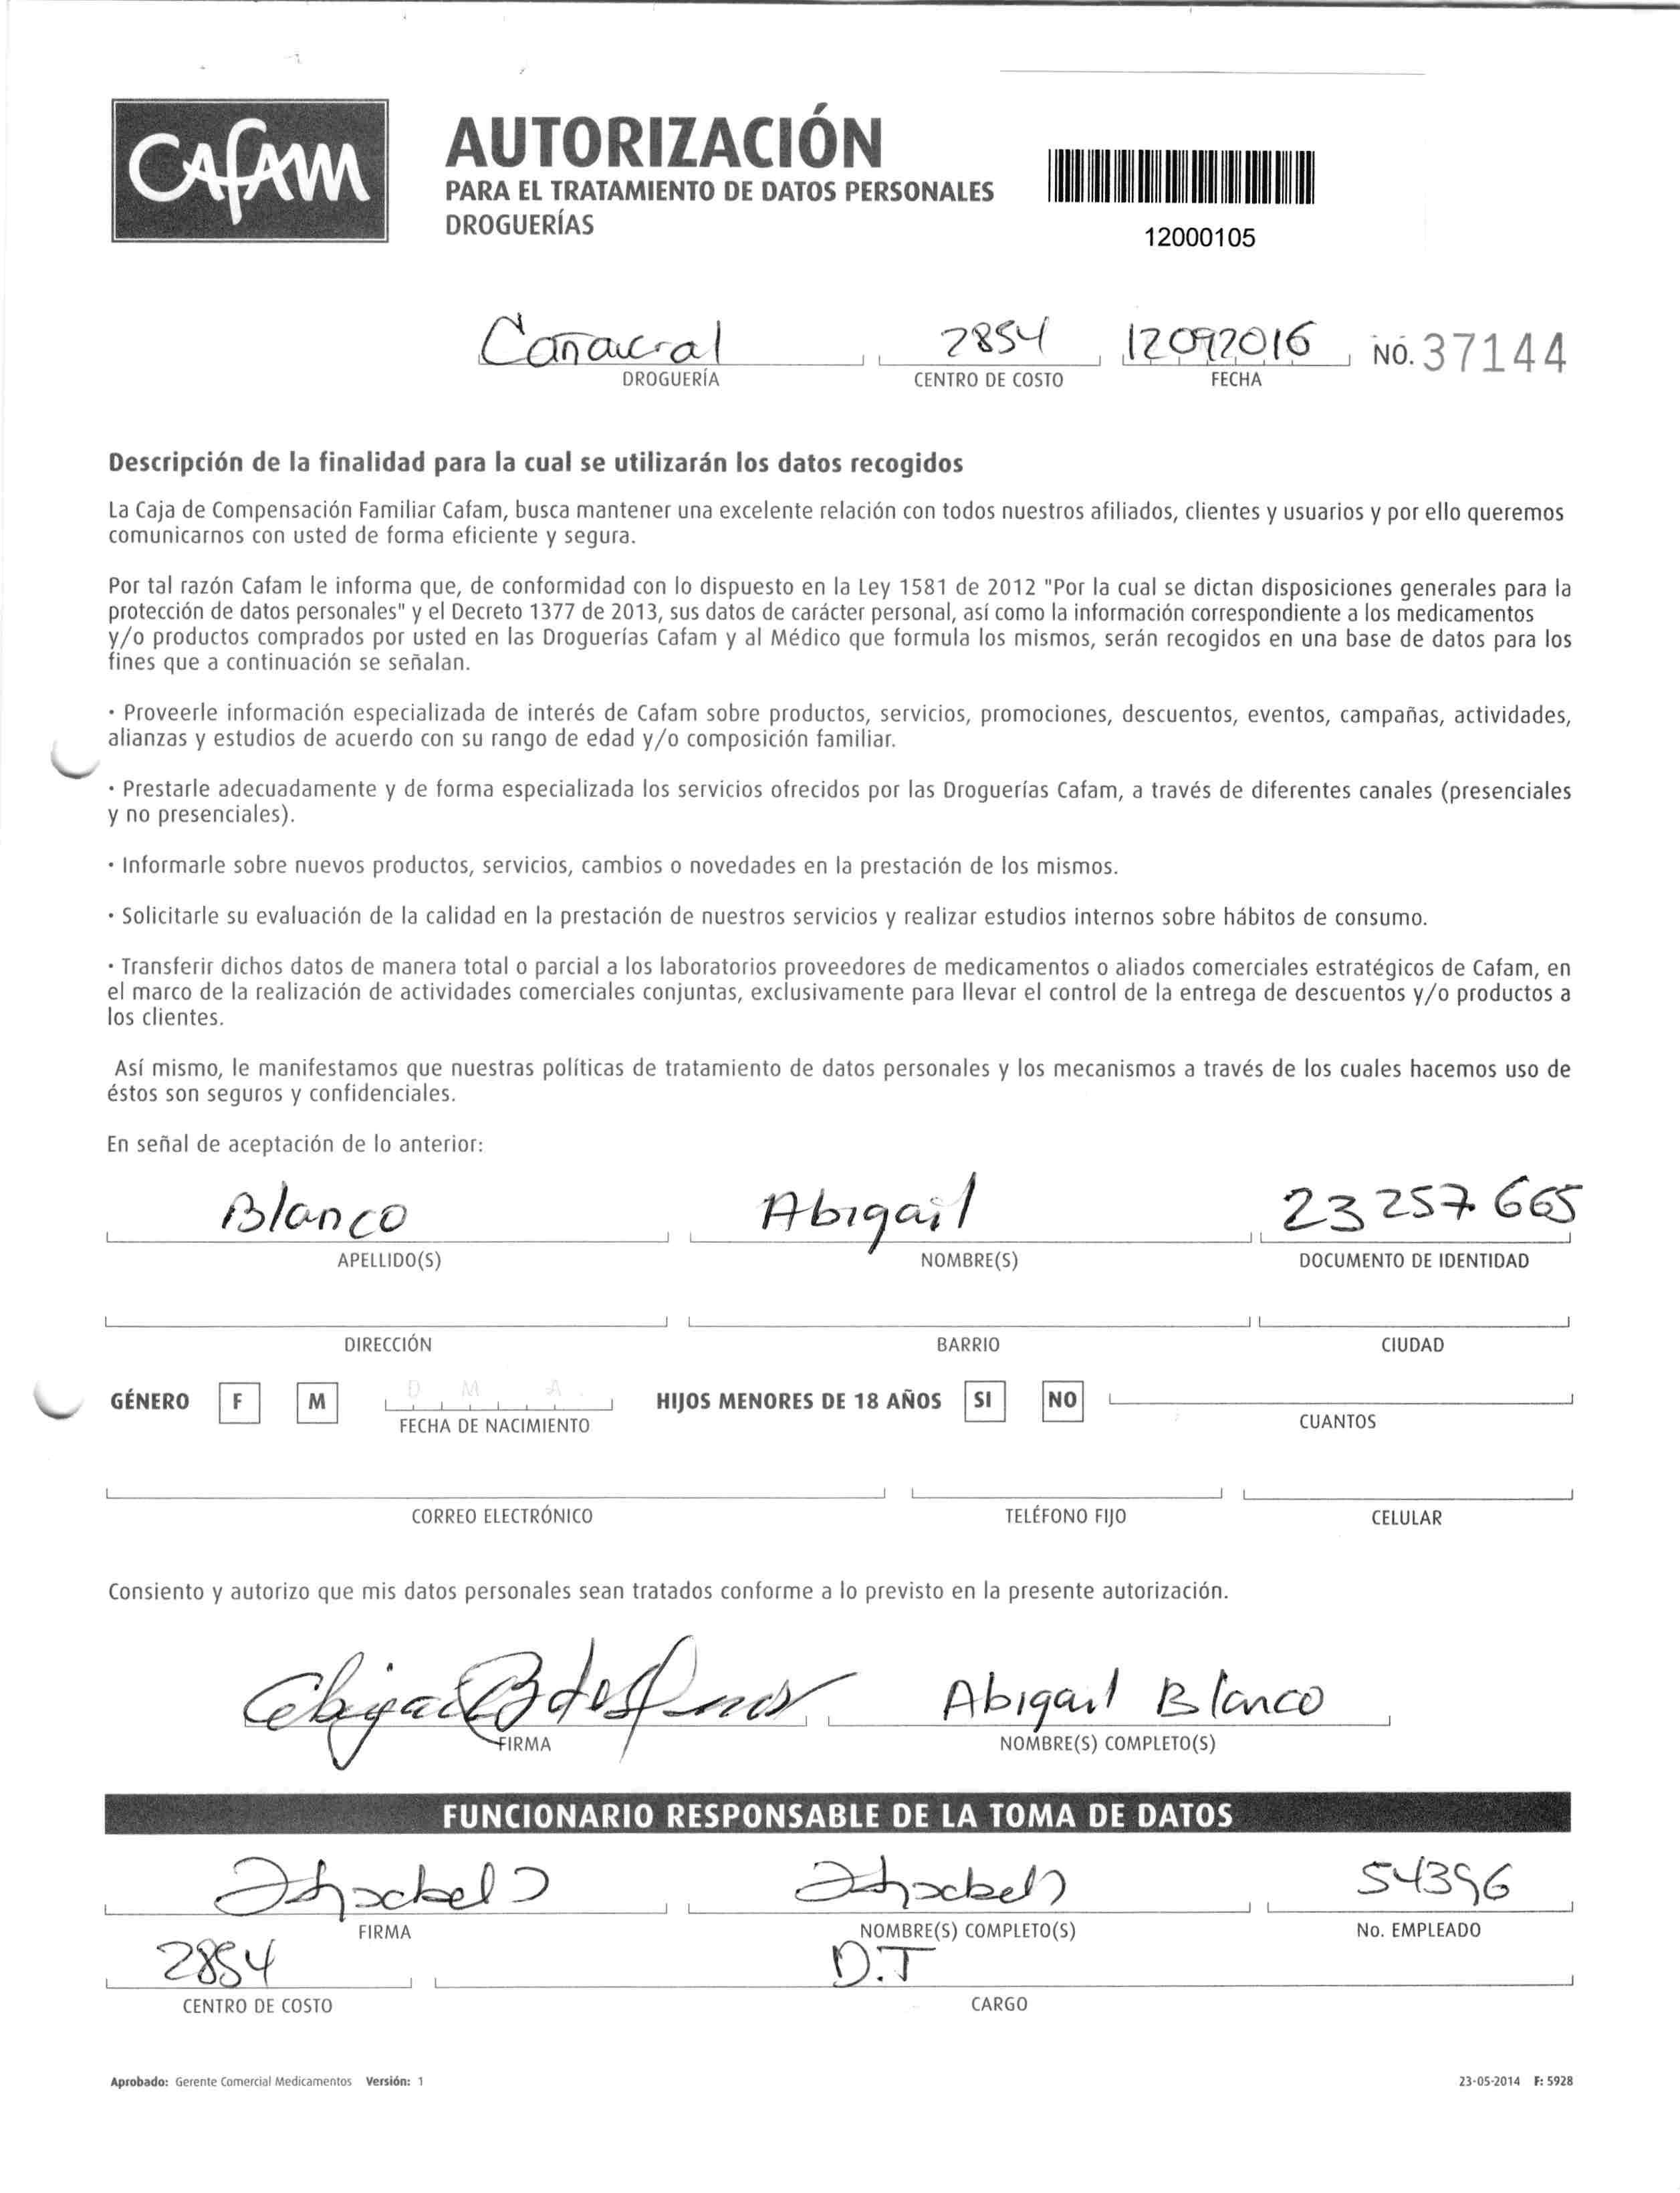 CAFAM
AUTORIZACIÓN
PARA EL TRATAMIENTO DE DATOS PERSONALES
DROGUERÍAS
12000105
2854 12092016 NO. 37144
DROGUERÍA CENTRO DE COSTO FECHA
Descripción de la finalidad para la cual se utilizarán los datos recogidos
La Caja de Compensación Familiar Cafam, busca mantener una excelente relación con todos nuestros afiliados, clientes y usuarios y por ello queremos
comunicarnos con usted de forma eficiente y segura.
Por tal razón Cafam le informa que, de conformidad con lo dispuesto en la Ley 1581 de 2012 "Por la cual se dictan disposiciones generales para la
protección de datos personales" y el Decreto 1377 de 2013, sus datos de carácter personal, así como la información correspondiente a los medicamentos
y/o productos comprados por usted en las Droguerías Cafam y al Médico que formula los mismos, serán recogidos en una base de datos para los
fines que a continuación se señalan.
· Proveerle información especializada de interés de Cafam sobre productos, servicios, promociones, descuentos, eventos, campañas, actividades,
alianzas y estudios de acuerdo con su rango de edad y/o composición familiar.
· Prestarle adecuadamente y de forma especializada los servicios ofrecidos por las Droguerías Cafam, a través de diferentes canales (presenciales
y no presenciales).
· Informarle sobre nuevos productos, servicios, cambios o novedades en la prestación de los mismos.
· Solicitarle su evaluación de la calidad en la prestación de nuestros servicios y realizar estudios internos sobre hábitos de consumo.
· Transferir dichos datos de manera total o parcial a los laboratorios proveedores de medicamentos o aliados comerciales estratégicos de Cafam, en
el marco de la realización de actividades comerciales conjuntas, exclusivamente para llevar el control de la entrega de descuentos y/o productos a
los clientes.
Así mismo, le manifestamos que nuestras políticas de tratamiento de datos personales y los mecanismos a través de los cuales hacemos uso de
éstos son seguros y confidenciales.
En señal de aceptación de lo anterior:
Blanco Abigail 23 257 665
APELLIDO(S) NOMBRE(S) DOCUMENTO DE IDENTIDAD
DIRECCIÓN BARRIO CIUDAD
GÉNERO F M D M A HIJOS MENORES DE 18 AÑOS SI NO
FECHA DE NACIMIENTO CUANTOS
CORREO ELECTRÓNICO TELÉFONO FIJO CELULAR
Consiento y autorizo que mis datos personales sean tratados conforme a lo previsto en la presente autorización.
Abigail Blanco
FIRMA NOMBRE(S) COMPLETO(S)
FUNCIONARIO RESPONSABLE DE LA TOMA DE DATOS
54396
FIRMA NOMBRE(S) COMPLETO(S) No. EMPLEADO
2854 D.T
CENTRO DE COSTO CARGO
Aprobado: Gerente Comercial Medicamentos Versión: 1 23-05-2014 F: 5928